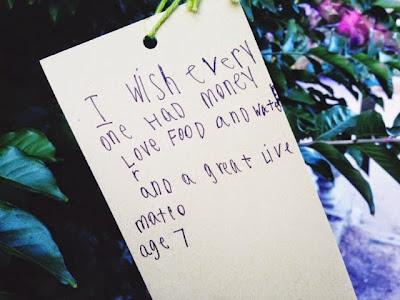 I wish every
one HAD money
Love FOOD and wate
r
and a great Live
mateo
age 7